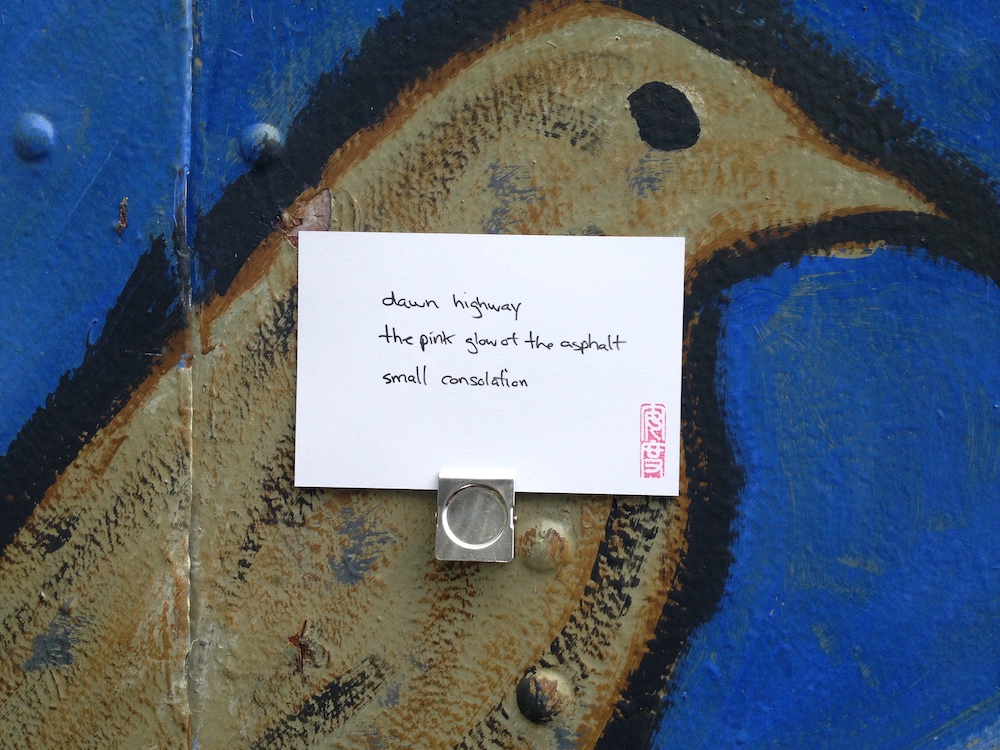 dawn highway
the pink glow of the asphalt
small consolation